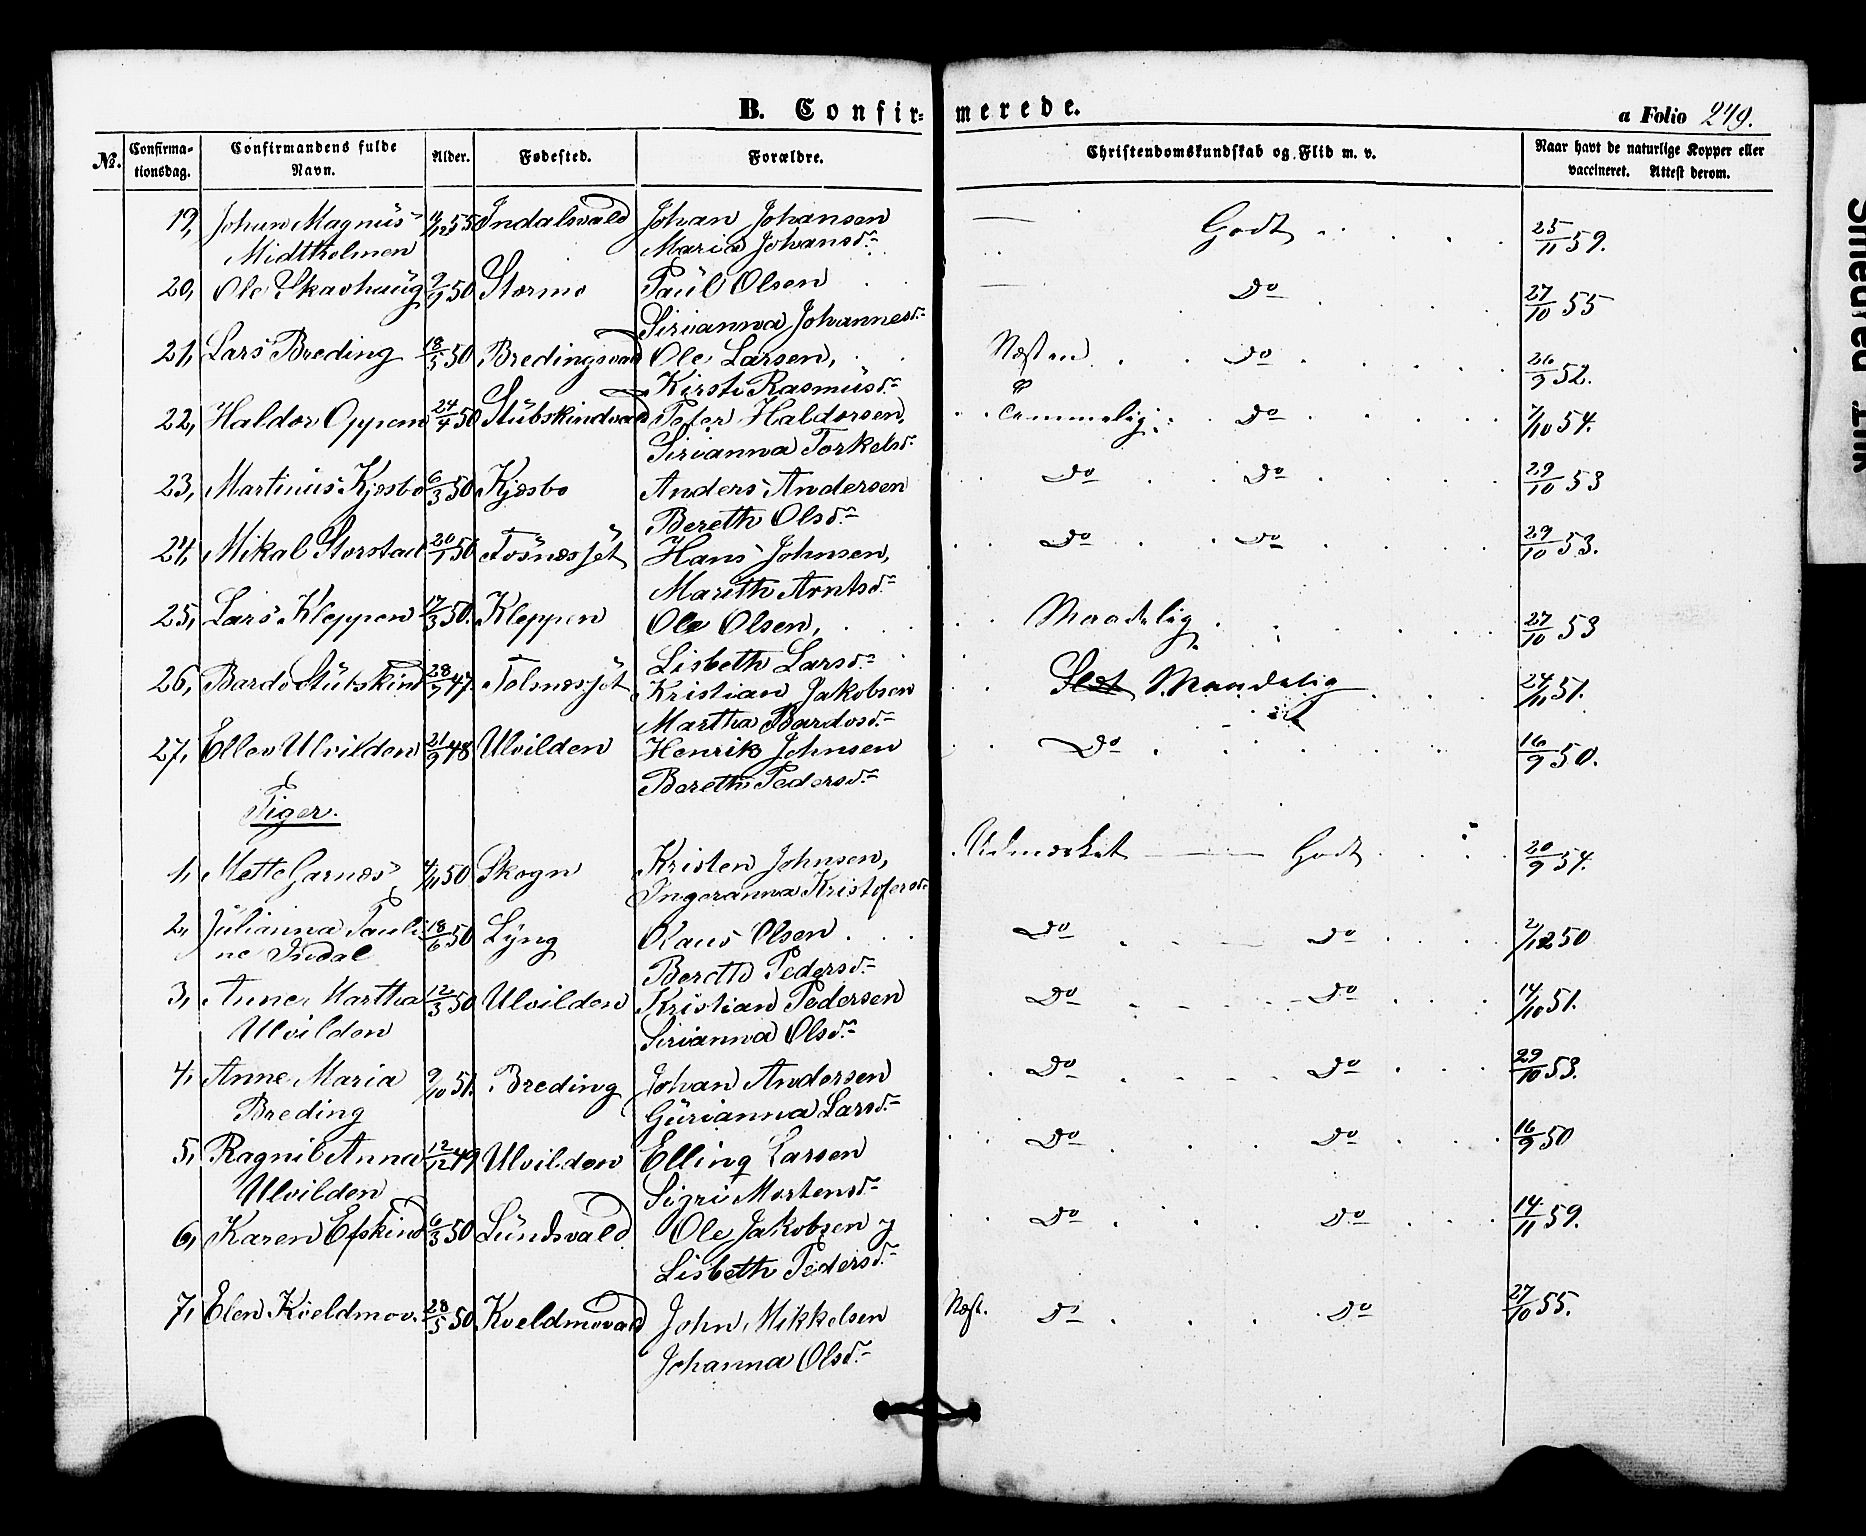 B. Confirmerede.
a Folio 249.
№. Confirmationsdag. Confirmandens fulde Navn. Alder. Fødested. Forældre. Christendomskundskab og Flid m. v. Naar havt de naturlige Kopper eller vaccineret. Attest derom.
19, Johan Magnus Indalsvald Johan Johansen — Godt 25/11 59.
Midtholmen Maria Johansd.
20, Ole Skavhaug 9/9 50 Stormo Paul Olsen — Do 27/10 55
Sirianna Johannesd.
21, Lars Breding 18/5 50 Bredingsvald Ole Larsen, Næsten Do 26/9 52.
Kirsti Rasmusd.
22, Haldor Oppem 24/4 50 Stubskindvald Peter Haldorsen, Temmelig Do 7/10 54.
Sirianna Torkelsd.
23, Martinus Kjesbo 6/3 50 Kjesbo Anders Andersen Do Do 29/10 53
Bereth Olsd.
24, Mikal Storstad 20/1 50 Fosnæsfjet Hans Johnsen, Do Do 29/10 53.
Marith Arntsd.
25, Lars Kleppen 17/3 50. Kleppen Ole Olsen, Maadelig 27/10 53
Lisbeth Larsd.
26, Bardo Stubskind 28/7 47. Folnæsfjet Kristian Jakobsen Slet Maadelig 24/11 51.
Martha Bardosd.
27, Ellev Ulvilden 21/9 48 Ulvilden Henrik Johnsen Do 16/9 50.
Bereth Pedersd.
Piger.
1, Mette Garnæs 4/11 50 Skogn Kristen Johnsen, Udmærket — Godt 20/9 54.
Ingeranna Kristofersd.
2, Julianna Pauli- 18/6 50 Lyng Klaus Olsen Do Do 2/12 50
ne Indal Bereth Pedersd.
3, Anne Martha 12/3 50 Ulvilden Kristian Pedersen Do Do 14/10 51.
Ulvilden Sirianna Olsd.
4, Anne Maria 9/10 51. Breding Johan Andersen Do Do 29/10 53.
Breding Gurianna Larsd.
5, Ragnil Anna 12/12 49 Ulvilden Elling Larsen Do Do 16/9 50
Ulvilden Sigri Mortensd.
6, Karen Efskind 6/3 50 Lundsvald Ole Jakobsen Do Do 14/11 59.
Lisbeth Pedersd.
7, Elen Kveldmov. 28/5 50 Kveldmovald John Mikkelsen Næst. Do Do 27/10 55.
Johanna Olsd.